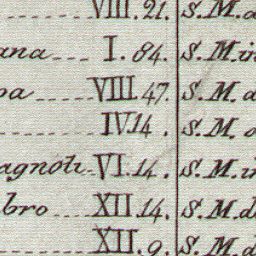 VIII. 21. S. M. a
ana I. 84. S. M. in
pa VIII. 47. S. M. a
IV. 14. S. M. o
agnoli VI. 14. S. M. in
bro XII. 14. S. M. de
XII. 9. S. M. d